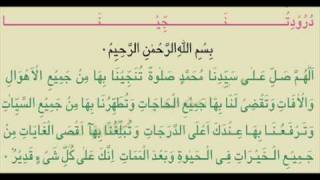 دُرُودِ تُنَجِّيْنَا
بِسْمِ اللهِ الرَّحْمٰنِ الرَّحِيْمُ
اَللّٰهُمَّ صَلِّ عَلٰى سَيِّدِنَا مُحَمَّدٍ صَلٰوةً تُنَجِّيْنَا بِهَا مِنْ جَمِيْعِ الْاَهْوَالِ
وَالْاٰفَاتِ وَتَقْضِىْ لَنَا بِهَا جَمِيْعَ الْحَاجَاتِ وَتُطَهِّرُنَا بِهَا مِنْ جَمِيْعِ السَّيِّاٰتِ
وَتَرْفَعُنَا بِهَا عِنْدَكَ اَعْلَى الدَّرَجَاتِ وَتُبَلِّغُنَا بِهَا اَقْصَى الْغَايَاتِ مِنْ
جَمِيْعِ الْخَيْرَاتِ فِى الْحَيٰوةِ وَبَعْدَ الْمَمَاتِ اِنَّكَ عَلٰى كُلِّ شَىْءٍ قَدِيْرٌ